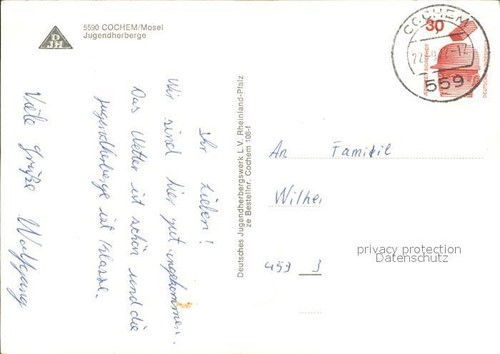 DJH
5590 COCHEM/Mosel
Jugendherberge
Ihr Lieben!
Wir sind hier gut angekommen.
Das Wetter ist schön und die
Jugendherberge ist Klasse.
Viele Grüße Wolfgang
Deutsches Jugendherbergswerk L.V. Rheinland-Pfalz
ze Bestellnr. Cochem 108-f
COCHEM
559
30
An Familie
Wilhe
459
privacy protection
Datenschutz